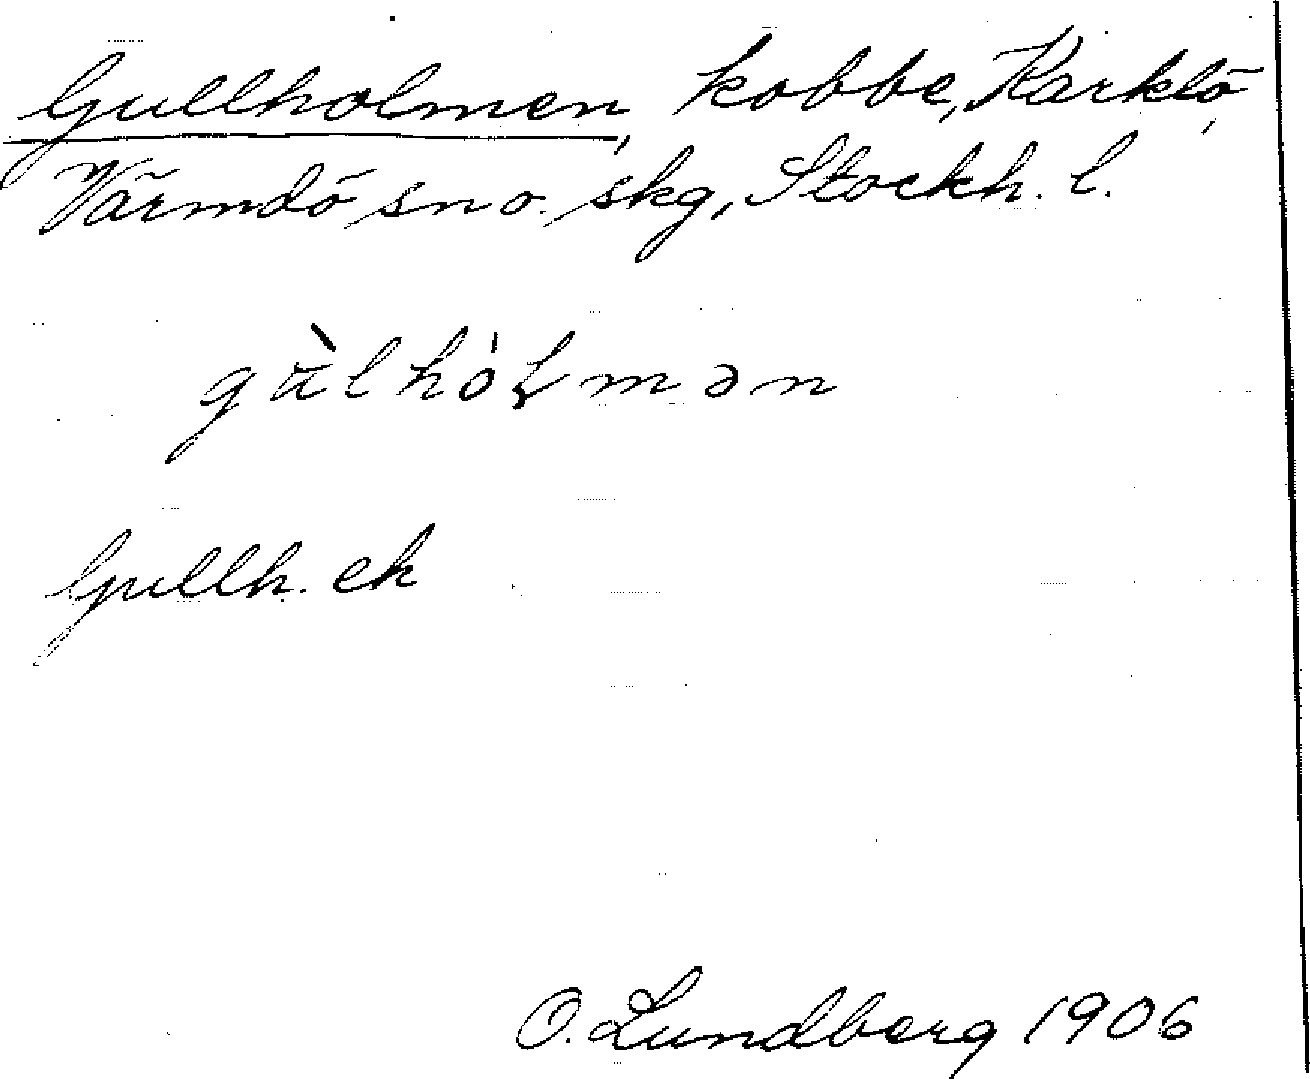 Gullholmen, kobbe, Karklö,
Värmdö sn o. skg, Stockh. l.
gùlhól̢mən
Gullh. ek
O. Lundberg 1906